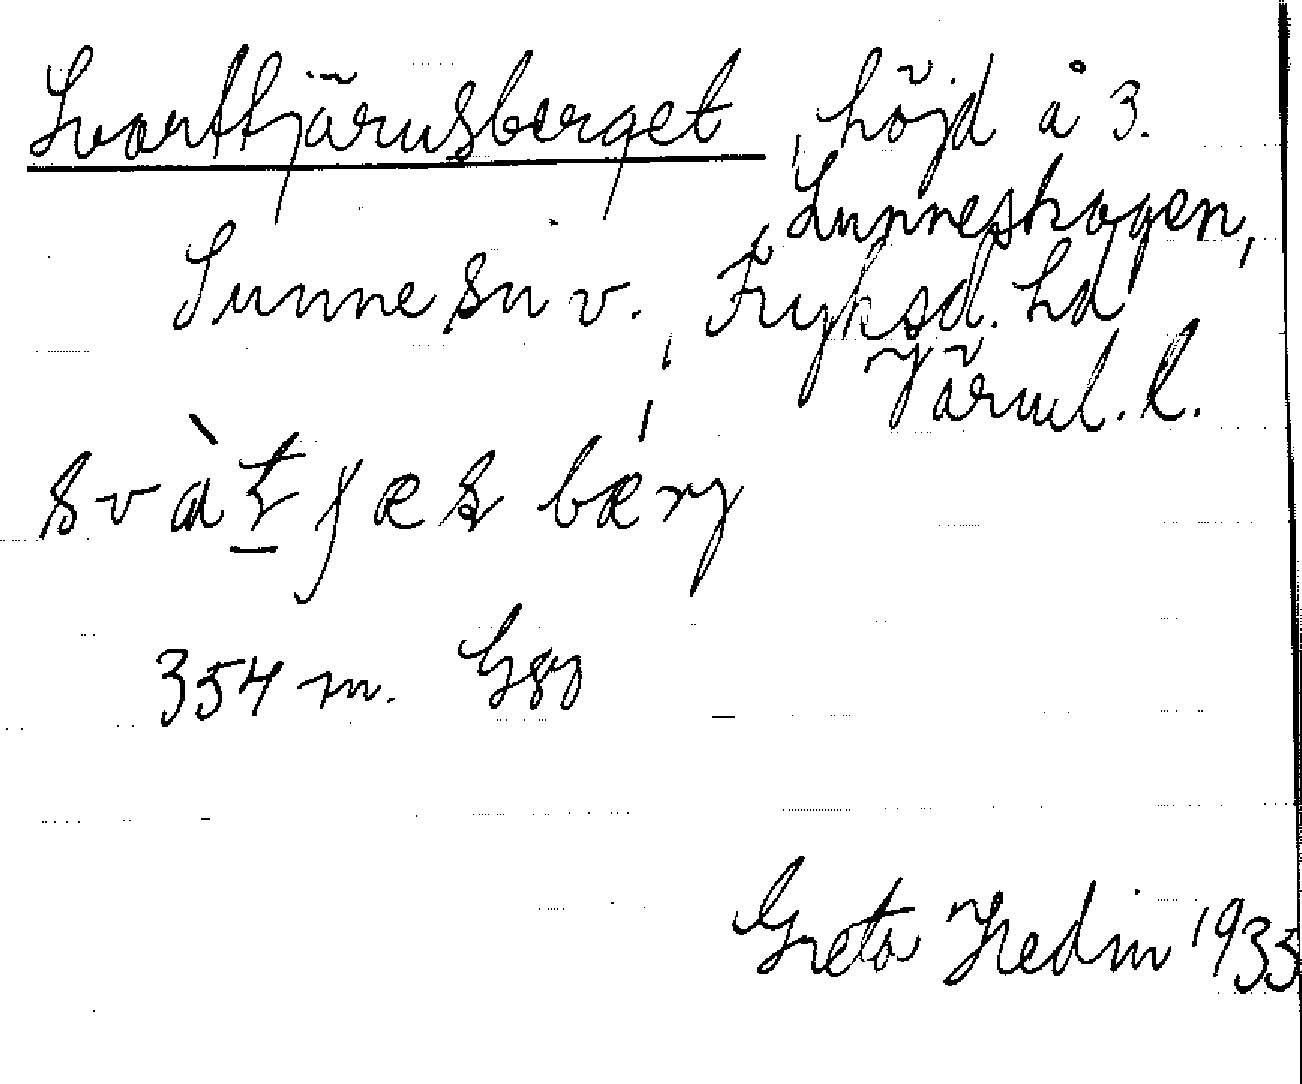 Svarttjärnsberget, höjd å 3.
Sunneskogen,
Sunne sn v., Fryksd. hd
Värml. l.
svàt̠jæs bærg
354 m. Gsg
Greta Hedin 1933